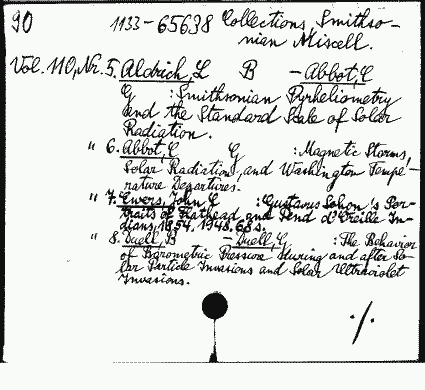 90 1133-65638 Collections, Smithso-
nian Miscell.
Vol. 110, Nr. 5. Aldrich, L B - Abbot, C
G : Smithsonian Pyrheliometry
and the Standard Scale of Solar
Radiation.
" 6. Abbot, C G : Magnetic Storms,
Solar Radiation, and Washington Tempe-
rature Departures.
" 7. Ewers, John C : Gustavus Sohon's Por-
traits of Flathead and Pend d'Oreille In-
dians, 1854. 1948. 68 s.
" 8. Duell, B - Duell, G : The Behavior
of Barometric Pressure during and after So-
lar Particle Invasions and Solar Ultraviolet
Invasions.
·/.